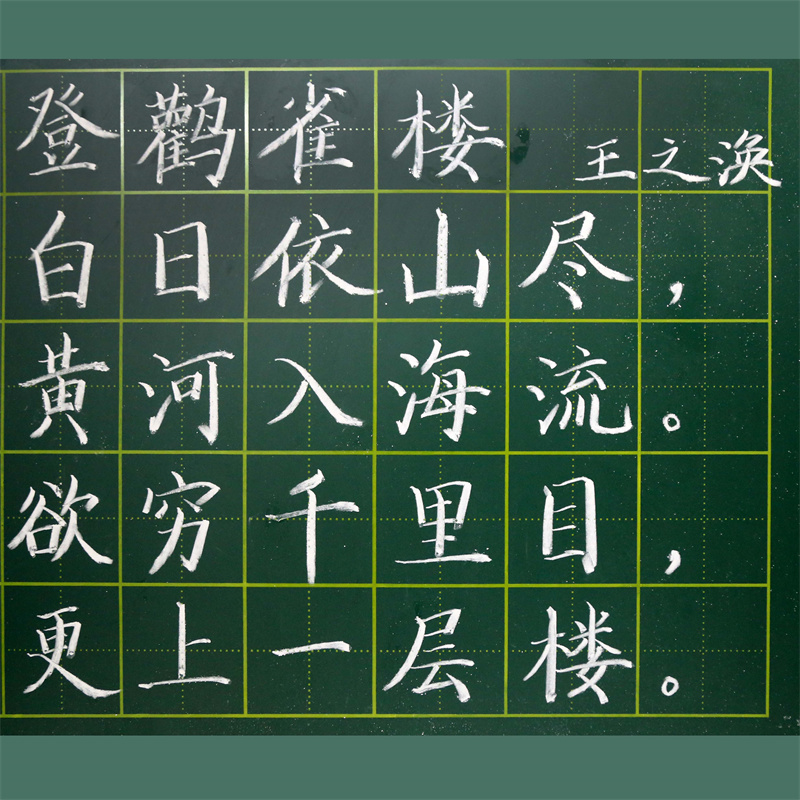 登鹳雀楼 王之涣
白日依山尽，
黄河入海流。
欲穷千里目，
更上一层楼。